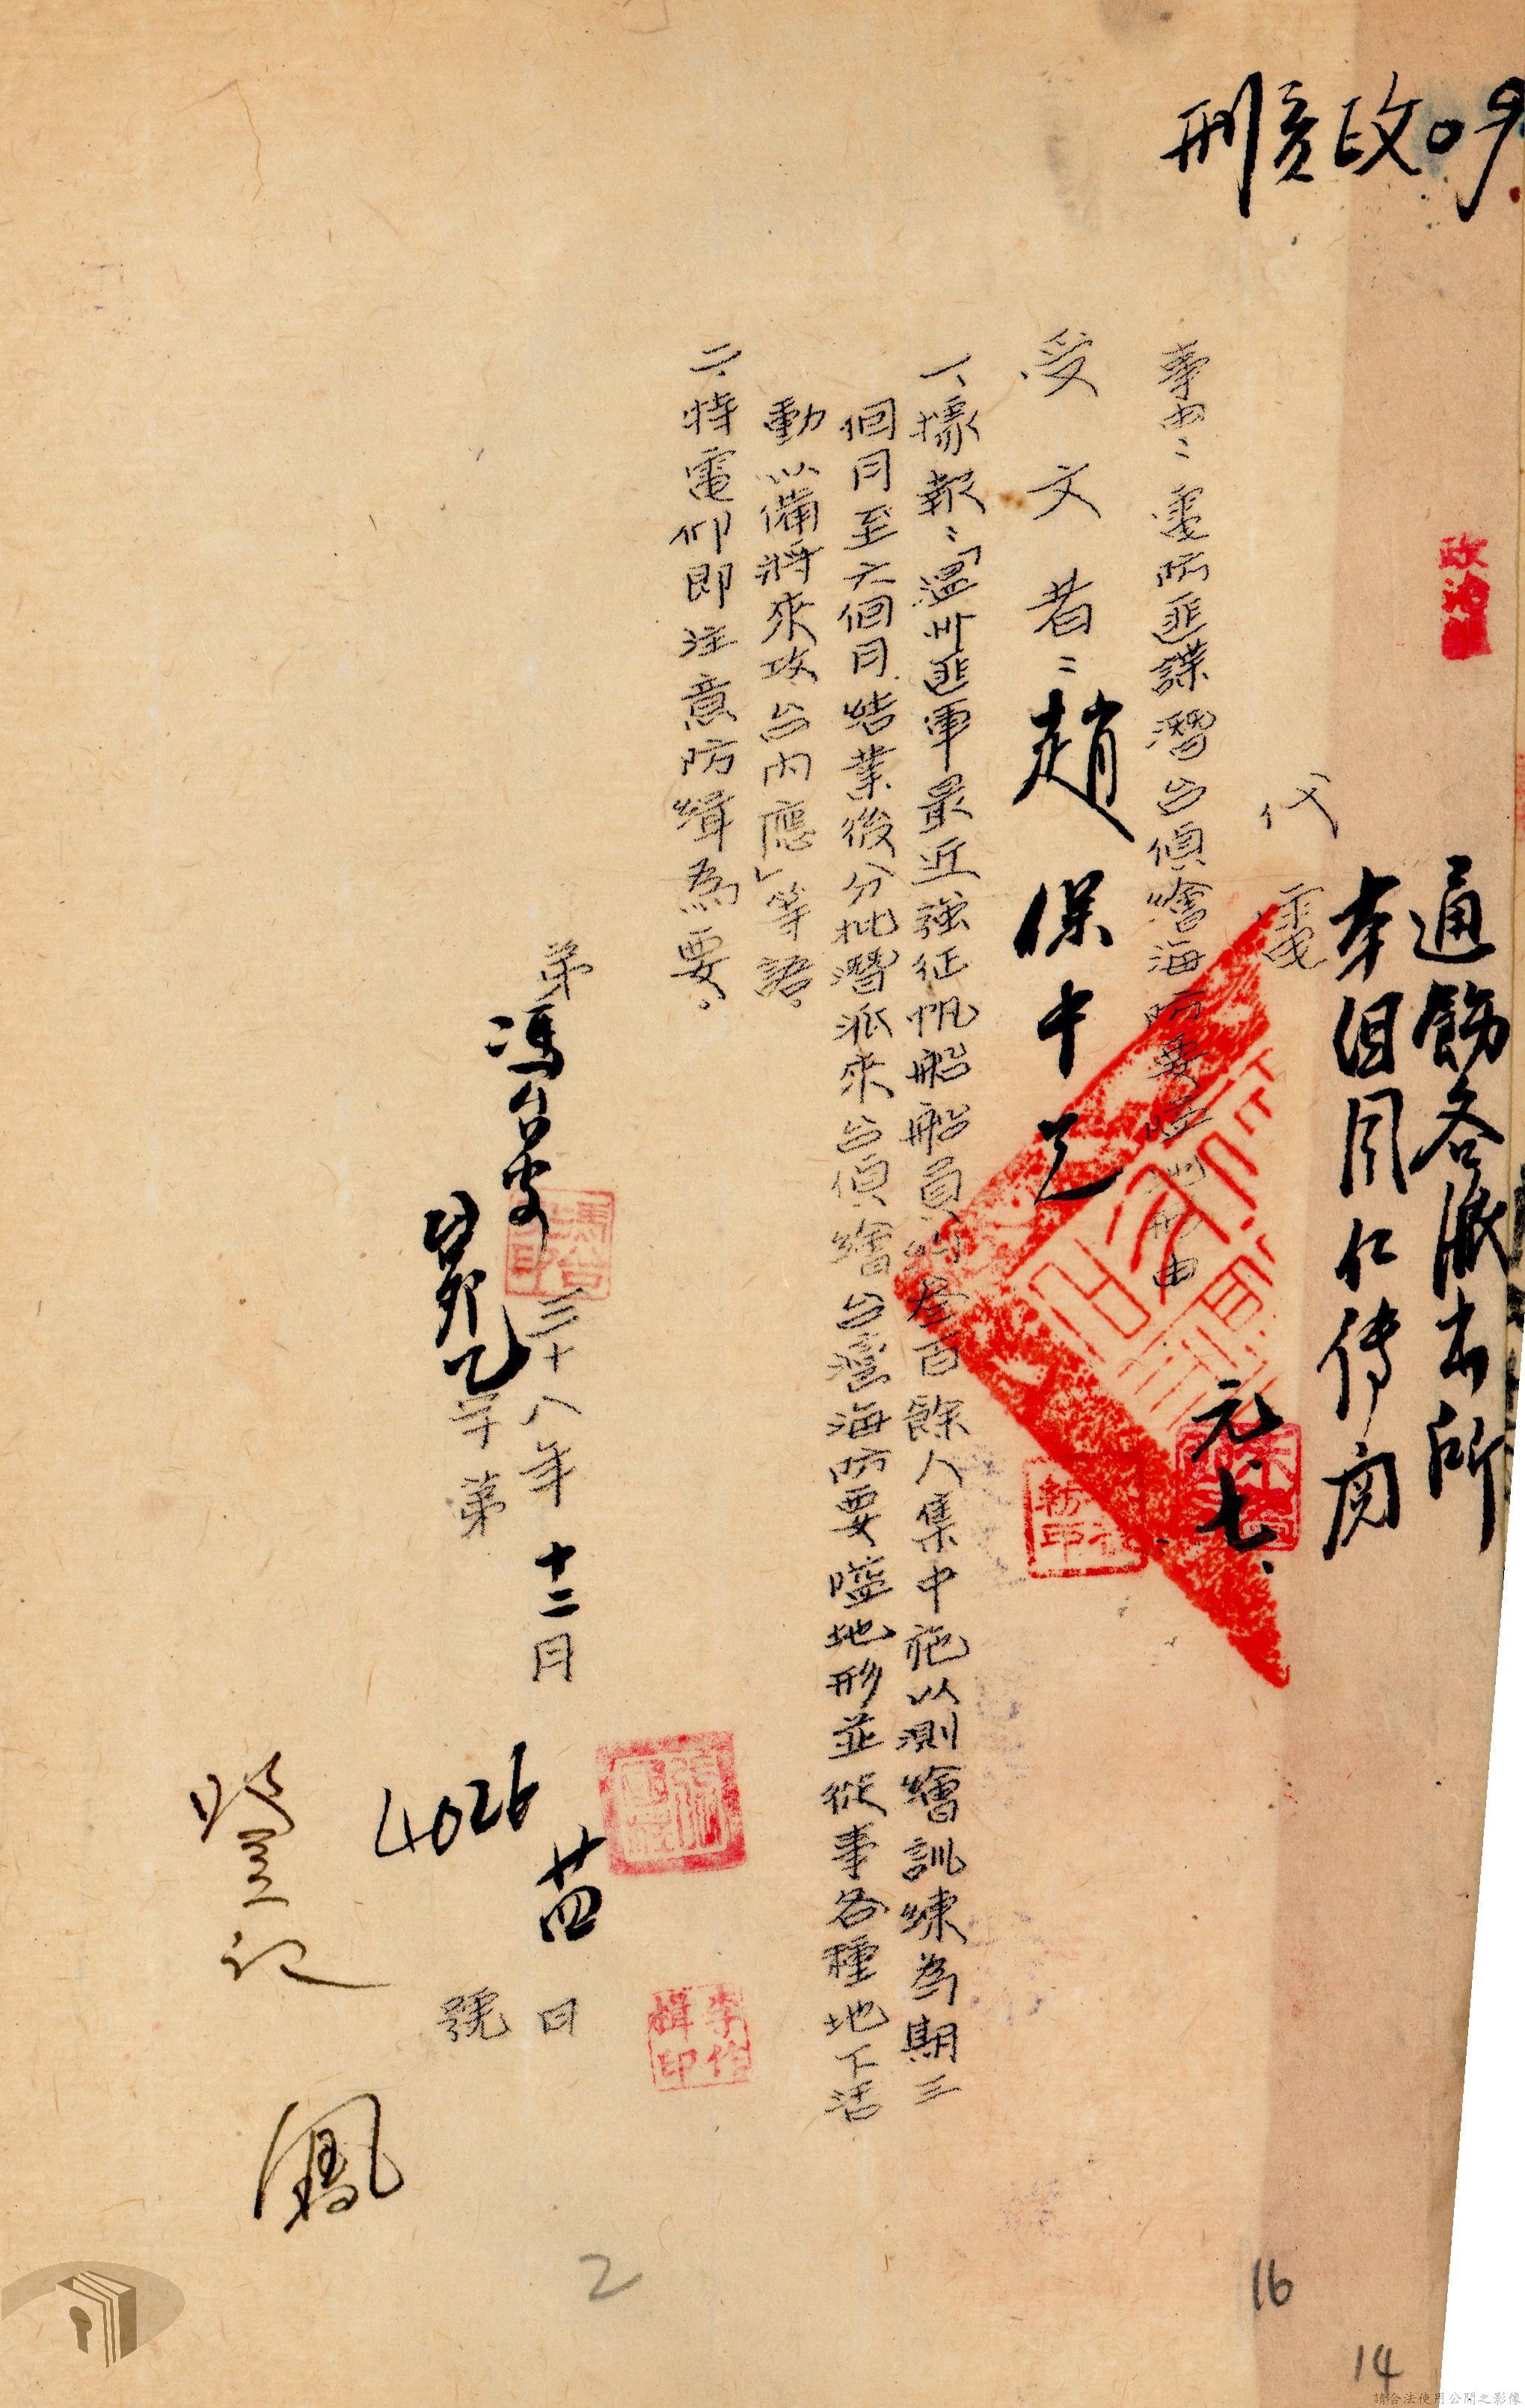 政治
通飭各派出所
本月
代電
元、七、
事由：電防匪諜潛台偵繪海防要
受文者：趙保中兄
一、據報：「溫州匪軍最近強征帆船船員約叁百餘人集中施以測繪訓練為期三
個月至六個月結業後分批潛派來台偵繪台灣海防要隘地形並從事各種地下活
動以備將來攻台內應」等語。
二、特電仰即注意防緝為要。
弟馮
馮台
印
三十八年十二月廿四日
字第4026號
李作
緝印
登記
2
16
14
請合法使用公開之影像